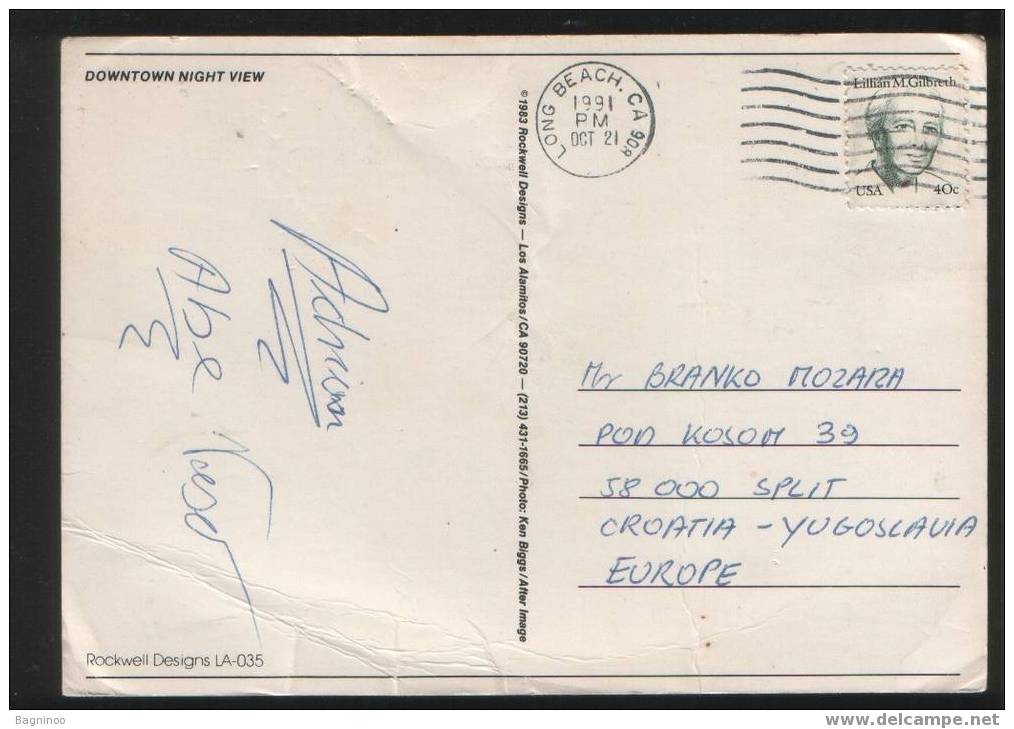 DOWNTOWN NIGHT VIEW
LONG BEACH, CA 908
1991
PM
OCT 21
Lillian M. Gilbreth
USA 40c
©1983 Rockwell Designs — Los Alamitos/CA 90720 — (213) 431-1665/Photo: Ken Biggs/After Image
Abe
Mr BRANKO MOZARA
POD KOSOM 39
58 000 SPLIT
CROATIA - YUGOSLAVIA
EUROPE
Rockwell Designs LA-035
Bagninoo
www.delcampe.net